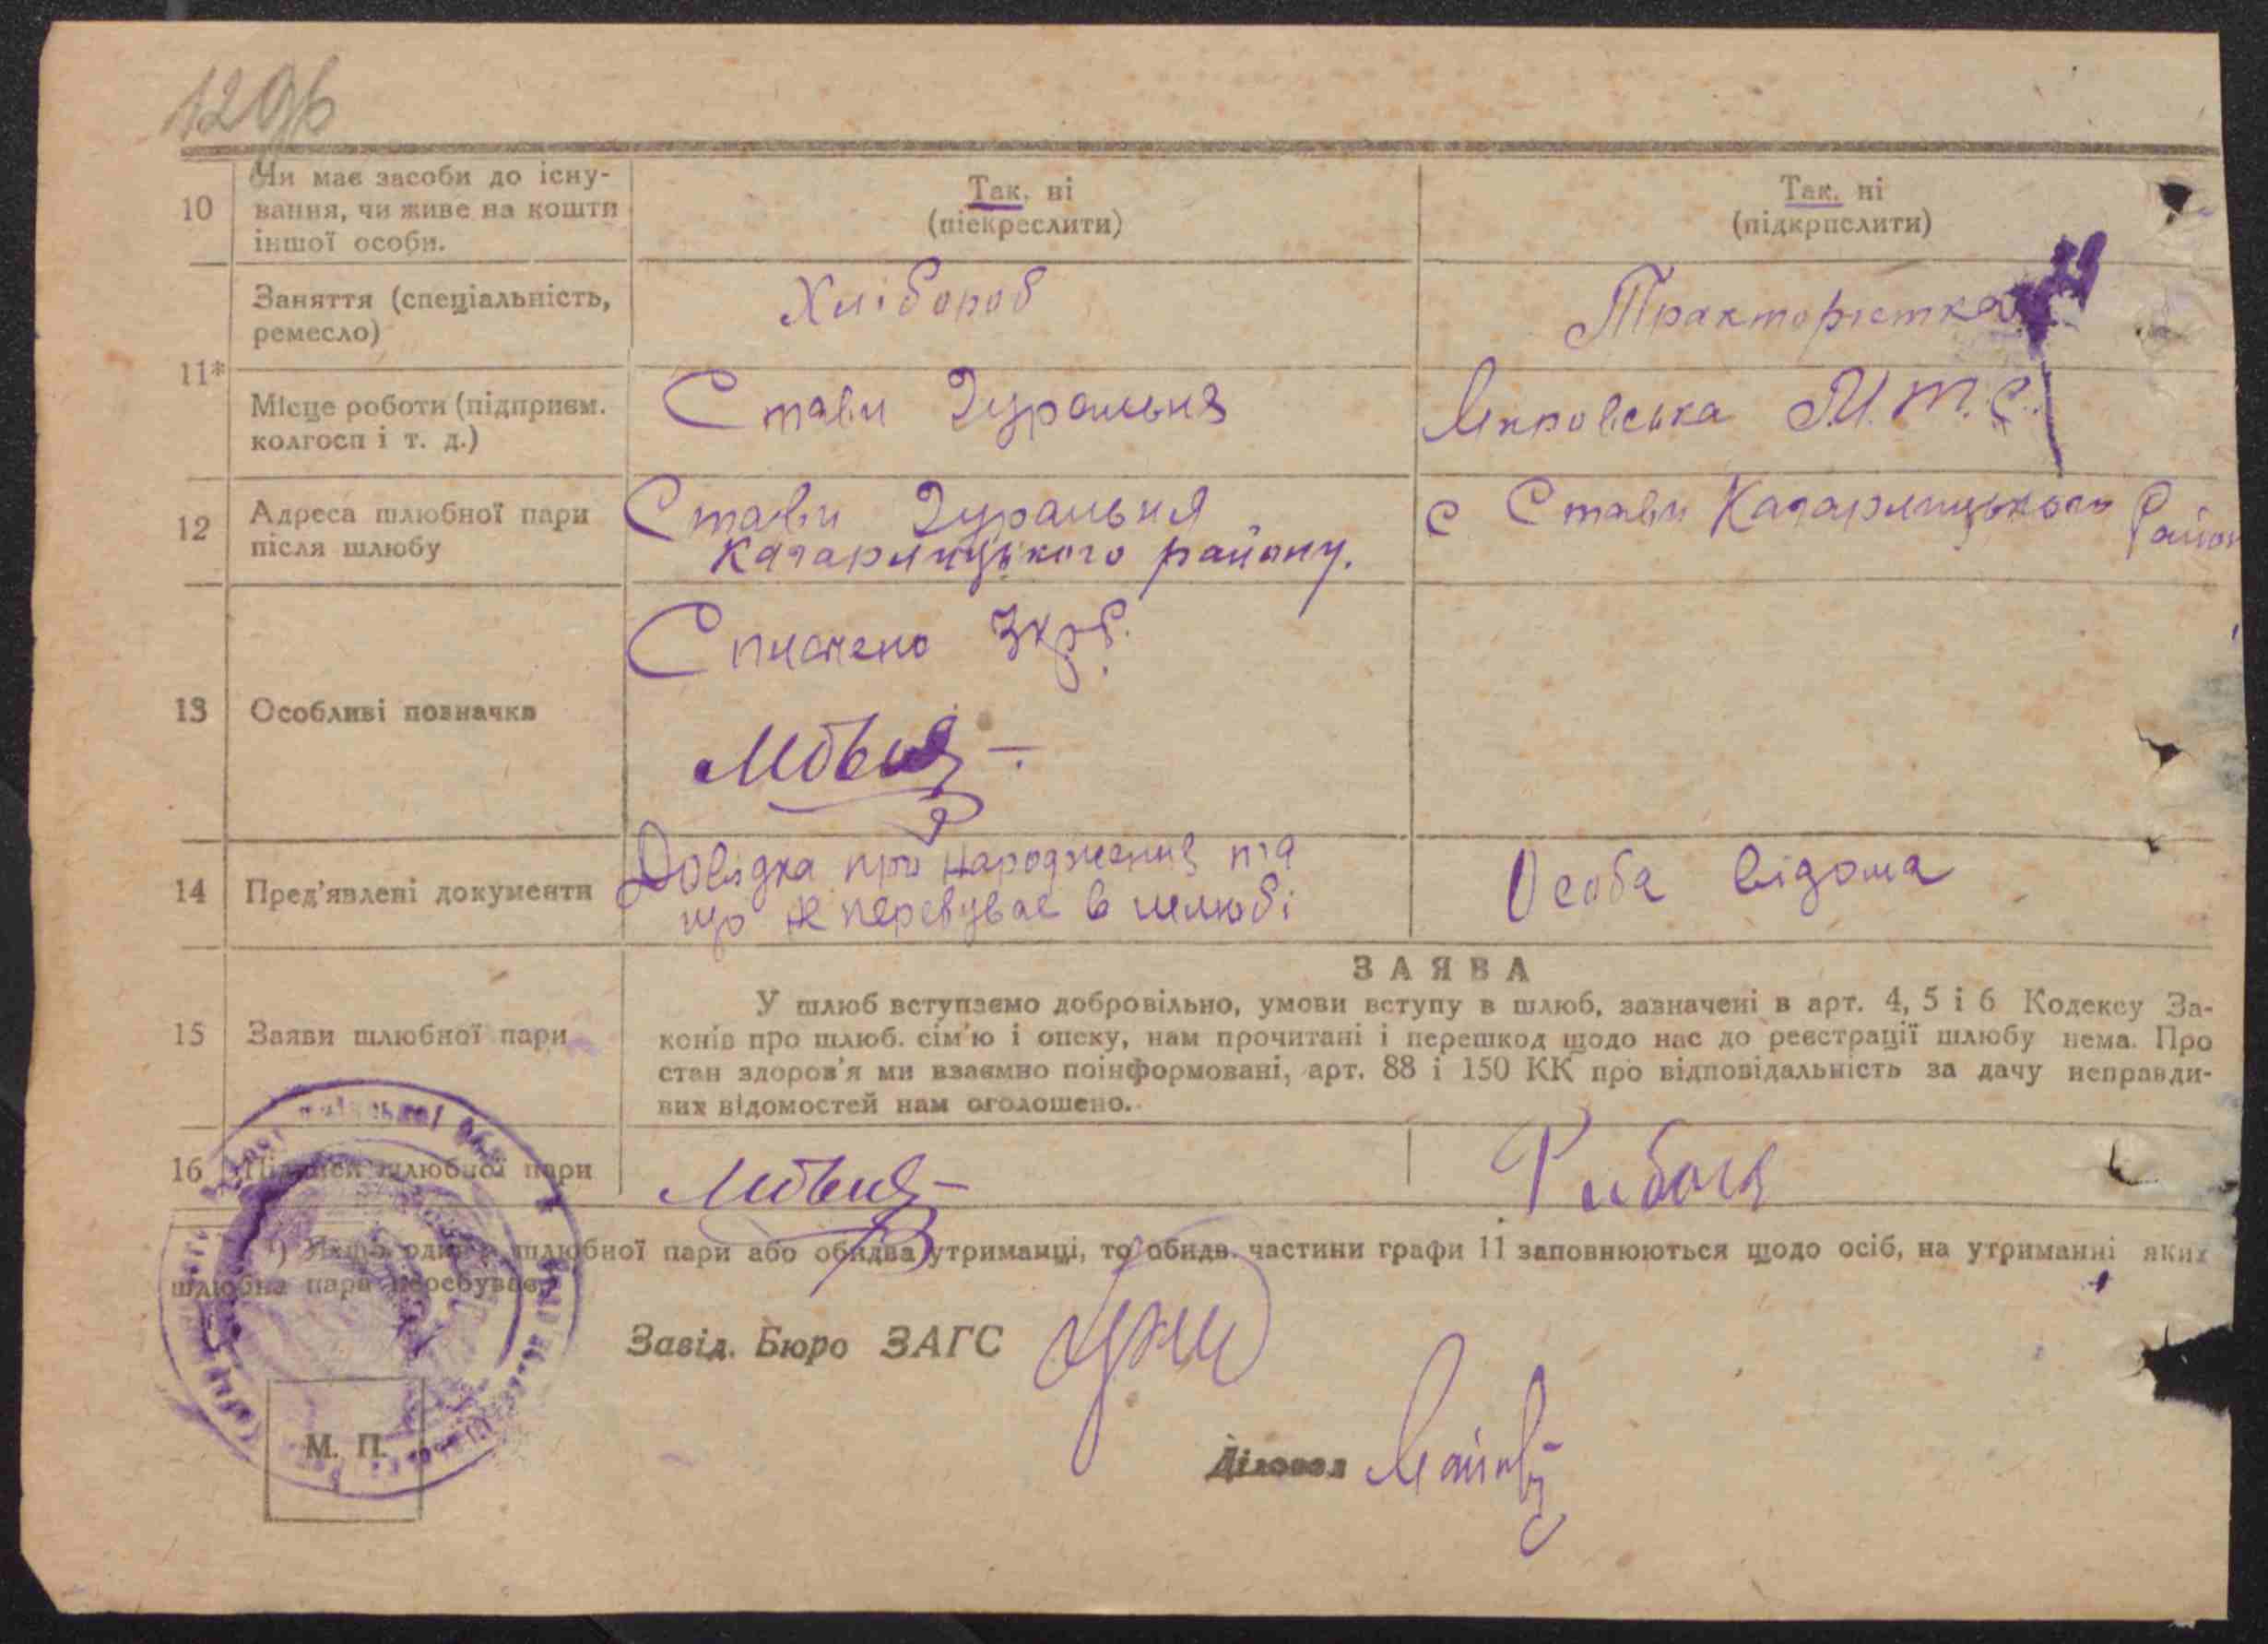 10
Чи має засоби до існу-
вання, чи живе на кошти
іншої особи.
Так, ні
(піекреслити)
Так, ні
(підкрпслити)
11*
Заняття (спеціальність,
ремесло)
Хлібороб
Трактористка
Місце роботи (підприєм.
колгосп і т. д.)
Стави Гуральня
М.Т.С.
12
Адреса шлюбної пари
після шлюбу
Стави Гуральня
Кагарлицького району.
с Стави Кагарлицького
Район
13
Особливі позначки
14
Пред'явлені документи
Довідка про народження та
що не перебуває в шлюбі
Особа відома
15
Заяви шлюбної пари
ЗАЯВА
У шлюб вступаємо добровільно, умови вступу в шлюб, зазначені в арт. 4, 5 і 6 Кодексу За-
конів про шлюб. сім'ю і опеку, нам прочитані і перешкод щодо нас до реєстрації шлюбу нема. Про
стан здоров'я ми взаємно поінформовані, арт. 88 і 150 КК про відповідальність за дачу неправди-
вих відомостей нам оголошено.
16
Підписи шлюбної пари
*) Якщо один з шлюбної пари або обидва утриманці, то обидв. частини графи 11 заповнюються щодо осіб, на утриманні яких
шлюбна пара перебуває.
Завід. Бюро ЗАГС
Діловод
М. П.